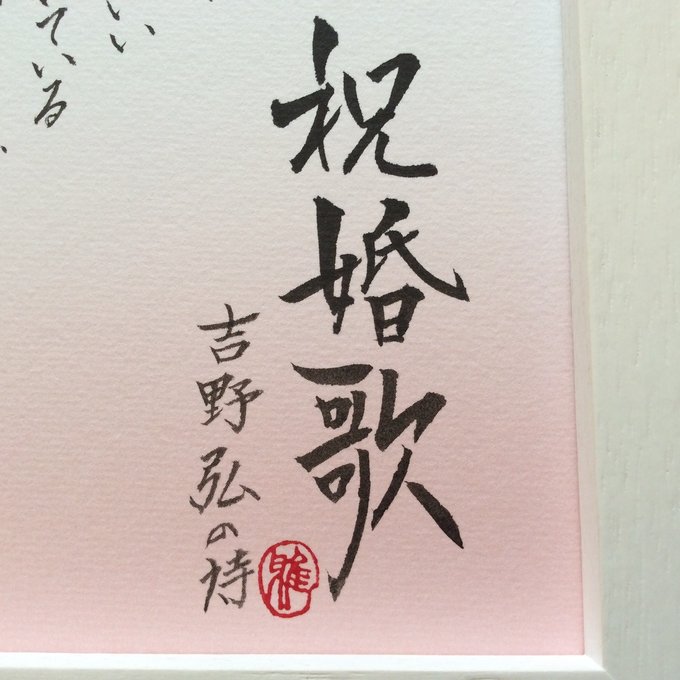 祝婚歌
吉野弘の詩
い
ている